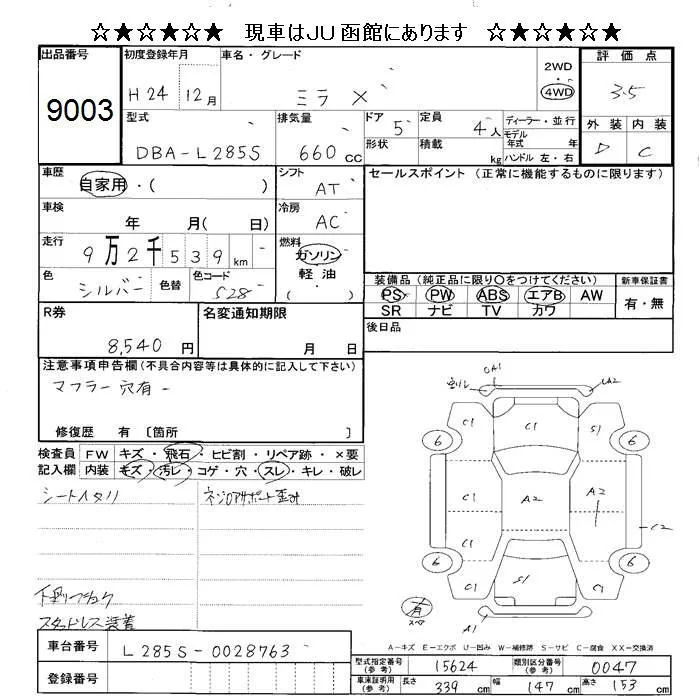 ☆★☆★☆★ 現車はJU函館にあります ☆★☆★☆★
出品番号 初度登録年月 車名・グレード 2WD 4WD 評価点
9003 H24 12月 ミラ X 3.5
型式 排気量 ドア 定員 ディーラー・並行 外装 内装
DBA-L285S 660cc 5 4人 モデル年式 年 D C
形状 積載 kg ハンドル 左・右
車歴 自家用・( ) シフト AT セールスポイント (正常に機能するものに限ります)
車検 年 月( 日) 冷房 AC
走行 9万2千539km 燃料 ガソリン
軽油
( )
色 シルバー 色替 色コード S28
装備品 (純正品に限り○をつけてください) 新車保証書
PS PW ABS エアB AW 有・無
SR ナビ TV カワ
R券 8,540円 名変通知期限 月 日
後日品
注意事項申告欄(不具合内容等は具体的に記入して下さい)
マフラー穴有
修復歴 有 〔箇所 〕
検査員 FW キズ・飛石・ヒビ割・リペア跡・×要
記入欄 内装 キズ・汚レ・コゲ・穴・スレ・キレ・破レ
シートヘタリ
スタッドレス装着
CA1 UA2
C1 C1 S1
6 6
C1 A2 A2 C2
C1
6 6
C1 S1 C1
有 A1
A-キズ E-エクボ U-凹み W-補修跡 S-サビ C-腐食 XX-交換済
車台番号 L285S-0028763
登録番号
型式指定番号(参考) 15624 類別区分番号(参考) 0047
車庫証明用(参考) 長さ 339cm 幅 147cm 高さ 153cm